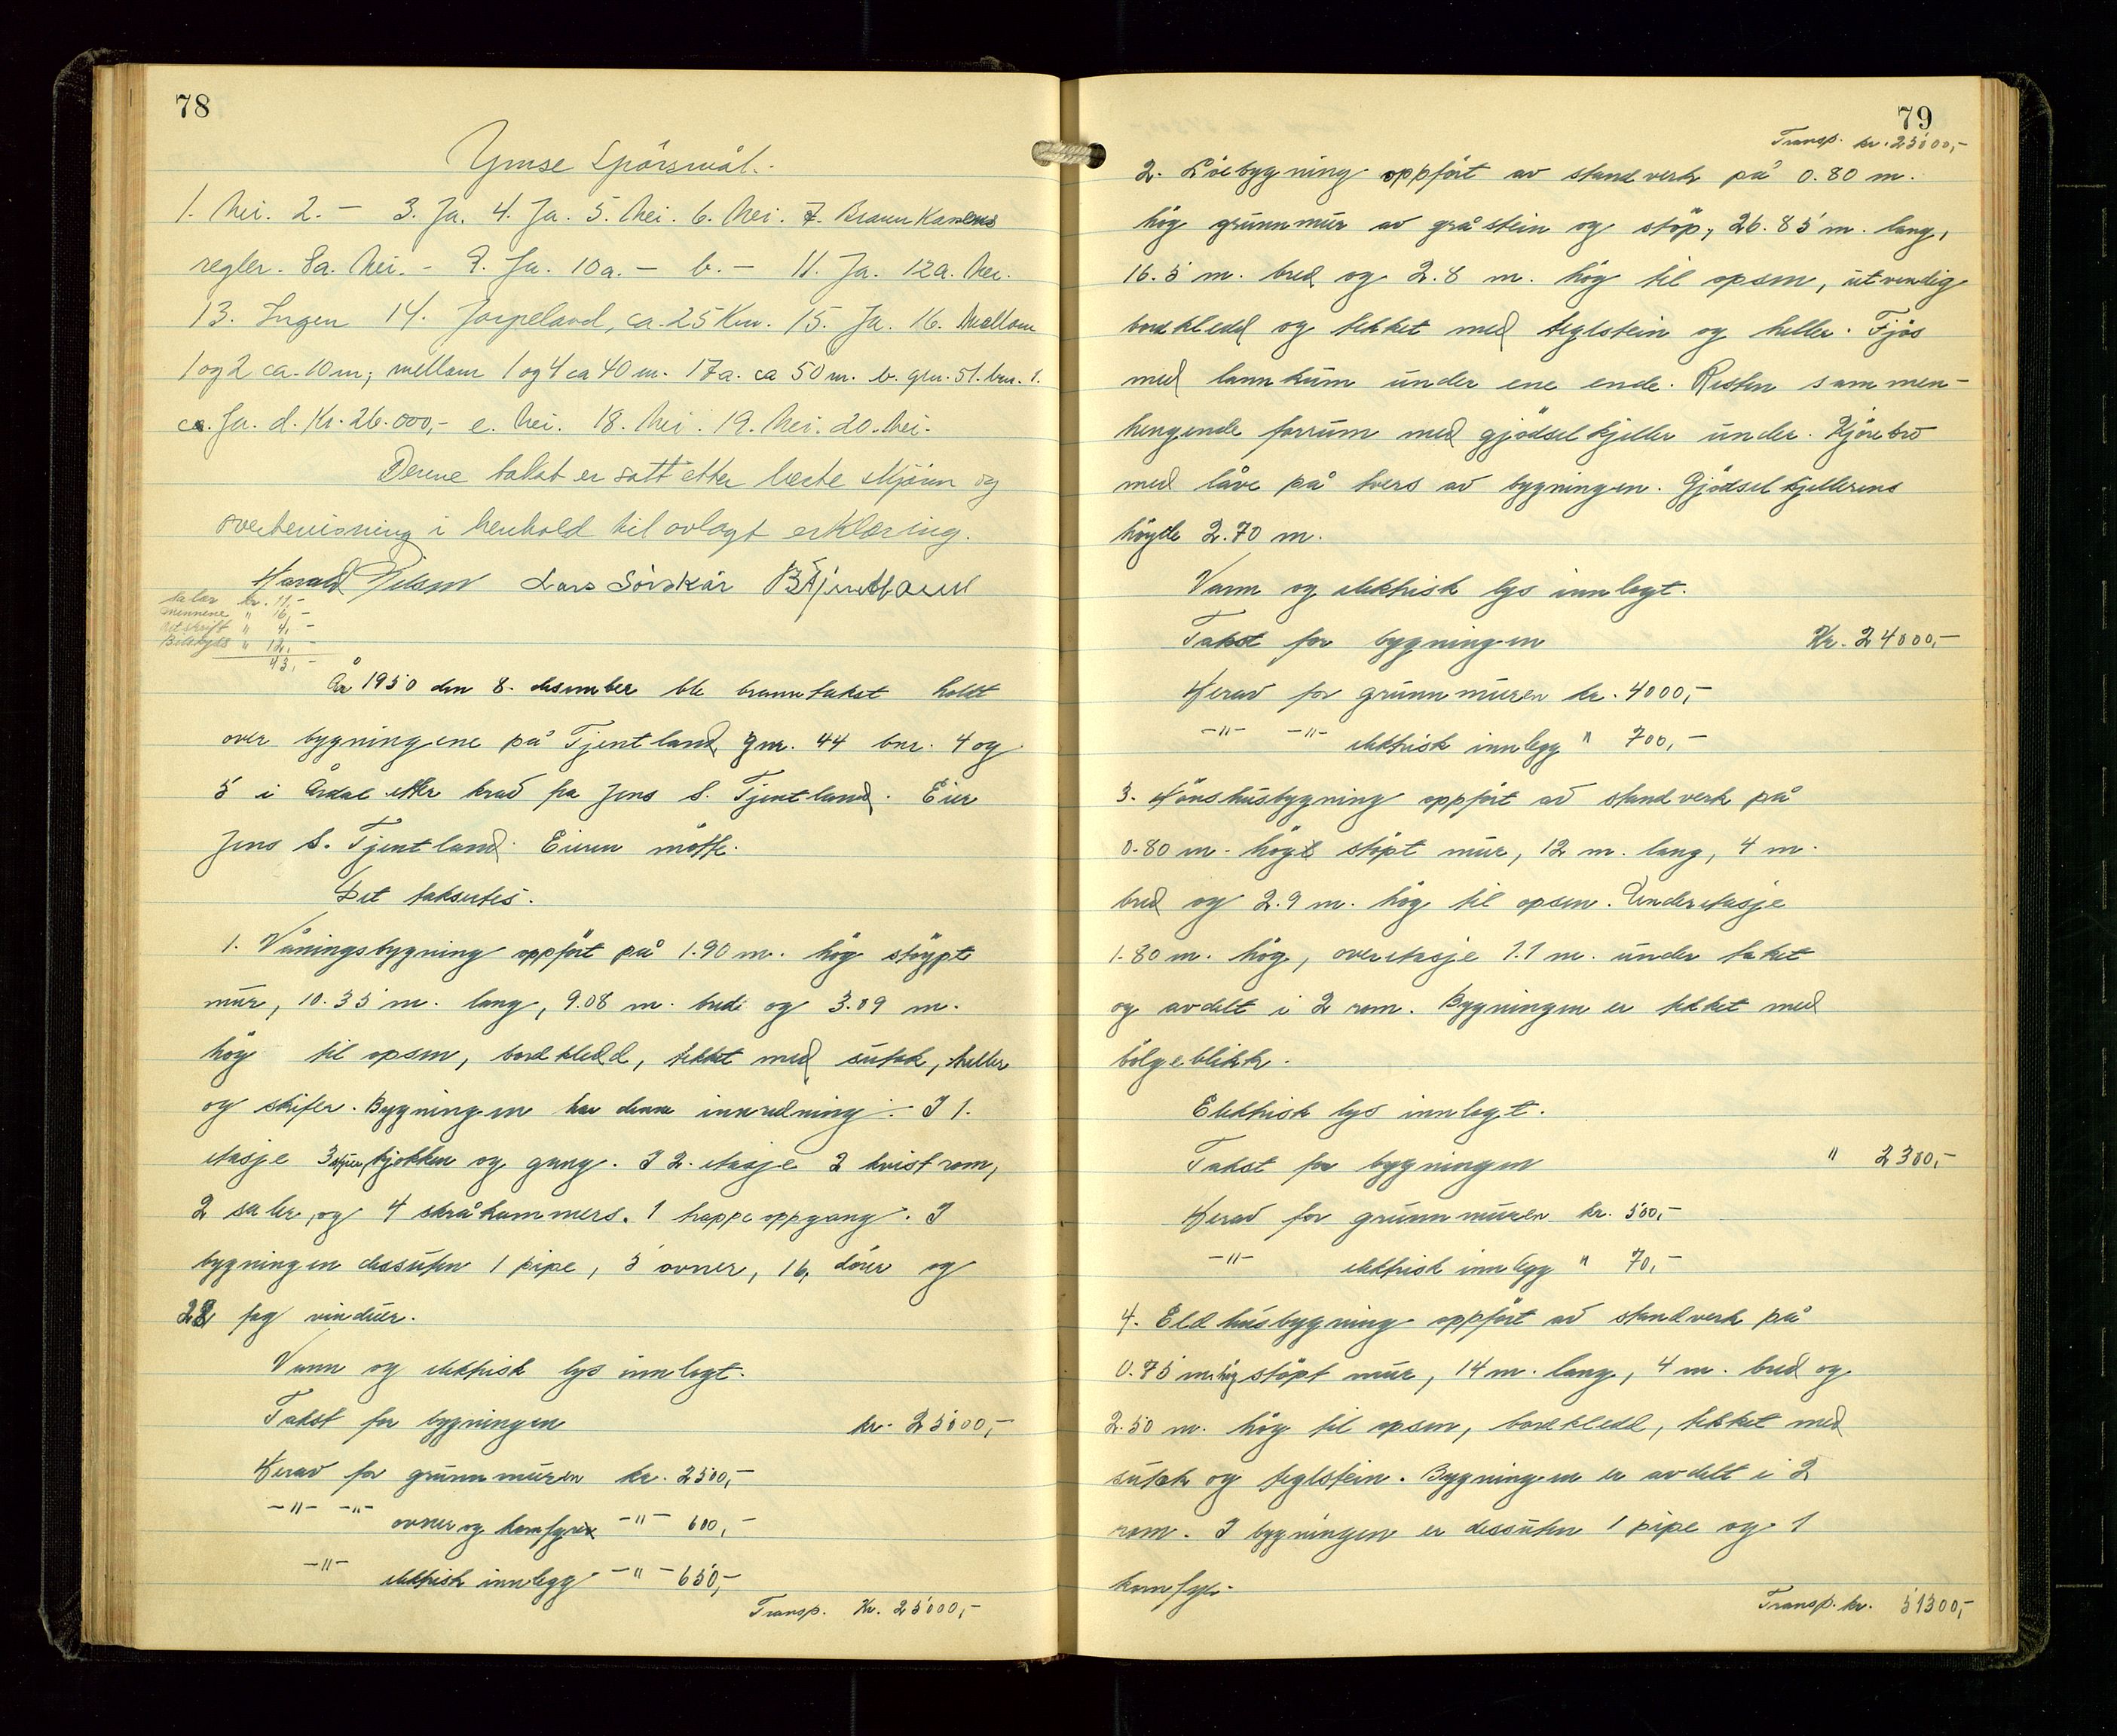 78
Ymse Spörsmål.
1. Nei. 2. — 3. Ja. 4. Ja. 5. Nei. 6. Nei. 7. Brannkassens
regler. 8a. Nei. - 9. Ja. 10a. — b. — 11. Ja. 12a. Nei.
13. Ingen 14. Jörpeland, ca. 25 Km. 15. Ja. 16. Mellom
1 og 2 ca. 10 m; mellom 1 og 4 ca 40 m. 17a. ca 50 m. b. gnr. 51. bnr. 1.
c. Ja. d. Kr. 26.000,- e. Nei. 18. Nei. 19. Nei. 20. Nei.
Denne takst er satt etter beste skjönn og
overbevisning i henhold til avlagt erklæring.
Harald Nilsen Lars Sörskår B Tjentland
Salær kr. 11,-
Mennene " 16,-
Utskrift " 4,-
Bilskyss " 12,-
43,-
År 1950 den 8. desember ble branntakst holdt
over bygningene på Tjentland gnr. 44 bnr. 4 og
5 i Årdal etter krav fra Jens S. Tjentland. Eier
Jens S. Tjentland. Eieren mötte.
Det taksertes.
1. Våningsbygning oppfört på 1.90 m. hög stöypt
mur, 10.35 m. lang, 9.08 m. bred og 3.09 m.
hög til opsen, bordkledd, tekket med sutak, heller
og skifer. Bygningen har denne innredning:- I 1.
etasje 3 stuer, kjökken og gang. I 2. etasje 2 kvistrom,
2 saler, og 4 skråkammers. 1 trappeoppgang. I
bygningen dessuten 1 pipe, 5 ovner, 16 dörer og
22 fag vinduer.
Vann og elektrisk lys innlagt.
Takst for bygningen kr. 25000,-
Herav for grunnmuren kr. 2500,-
—"— —"— ovner og komfyrer —"— 600,-
—"— elektrisk innlegg —"— 650,-
Transp. Kr. 25000,-
79
Transp. kr. 25000,-
2. Löebygning oppfört av standverk på 0.80 m.
hög grunnmur av gråstein og stöp, 26.85 m. lang,
16.5 m. bred og 2.8 m. hög til opsen, utvendig
bordkledd og tekket med teglstein og heller. Fjös
med landkum under ene ende. Resten sammen-
hengende forrum med gjödselkjeller under. Kjörebro
med låve på tvers av bygningen. Gjödselkjellerens
höyde 2.70 m.
Vann og elektrisk lys innlagt.
Takst for bygningen Kr. 24000,-
Herav for grunnmuren kr. 4000,-
—"— —"— elektrisk innlegg " 700,-
3. Hönshusbygning oppfört av standverk på
0.80 m. hög stöpt mur, 12 m. lang, 4 m.
bred og 2.9 m. hög til opsen. Underetasje
1.80 m. hög, overetasje 1.1 m. under taket
og avdelt i 2 rom. Bygningen er tekket med
bölgeblikk.
Elektrisk lys innlagt.
Takst for bygningen " 2300,-
Herav for grunnmuren kr. 500,-
—"— elektrisk innlegg " 70,-
4. Eldhusbygning oppfört av standverk på
0.75 m. hög stöpt mur, 14 m. lang, 4 m. bred og
2.50 m. hög til opsen, bordkledd, tekket med
sutak og teglstein. Bygningen er avdelt i 2
rom. I bygningen er dessuten 1 pipe og 1
komfyr.
Transp. kr. 51300,-